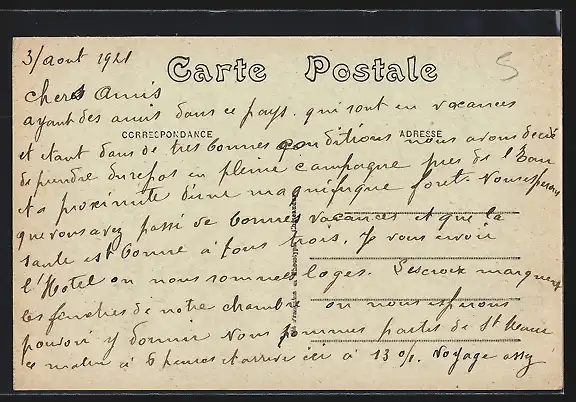 3/aout 1921
Carte Postale
chers amis
ayant des amis dans ce pays. qui sont en vacances
CORRESPONDANCE ADRESSE
et etant dans de tres bonnes conditions nous avons décidé
de prendre du repos en pleine campagne pres de l'Eau
et a proximite d'une magnifique foret. Nous esperons
que vous avez passé de bonnes vacances et que la
sante est bonne a tous trois. Je vous envoie
l'Hotel ou nous sommes loges. Les croix marquent
les fenetres de notre chambre ou nous esperons
pouvoir y dormir Nous sommes partis de St
ce matin a 6 heures et arrive ici à 13 h. Voyage assez